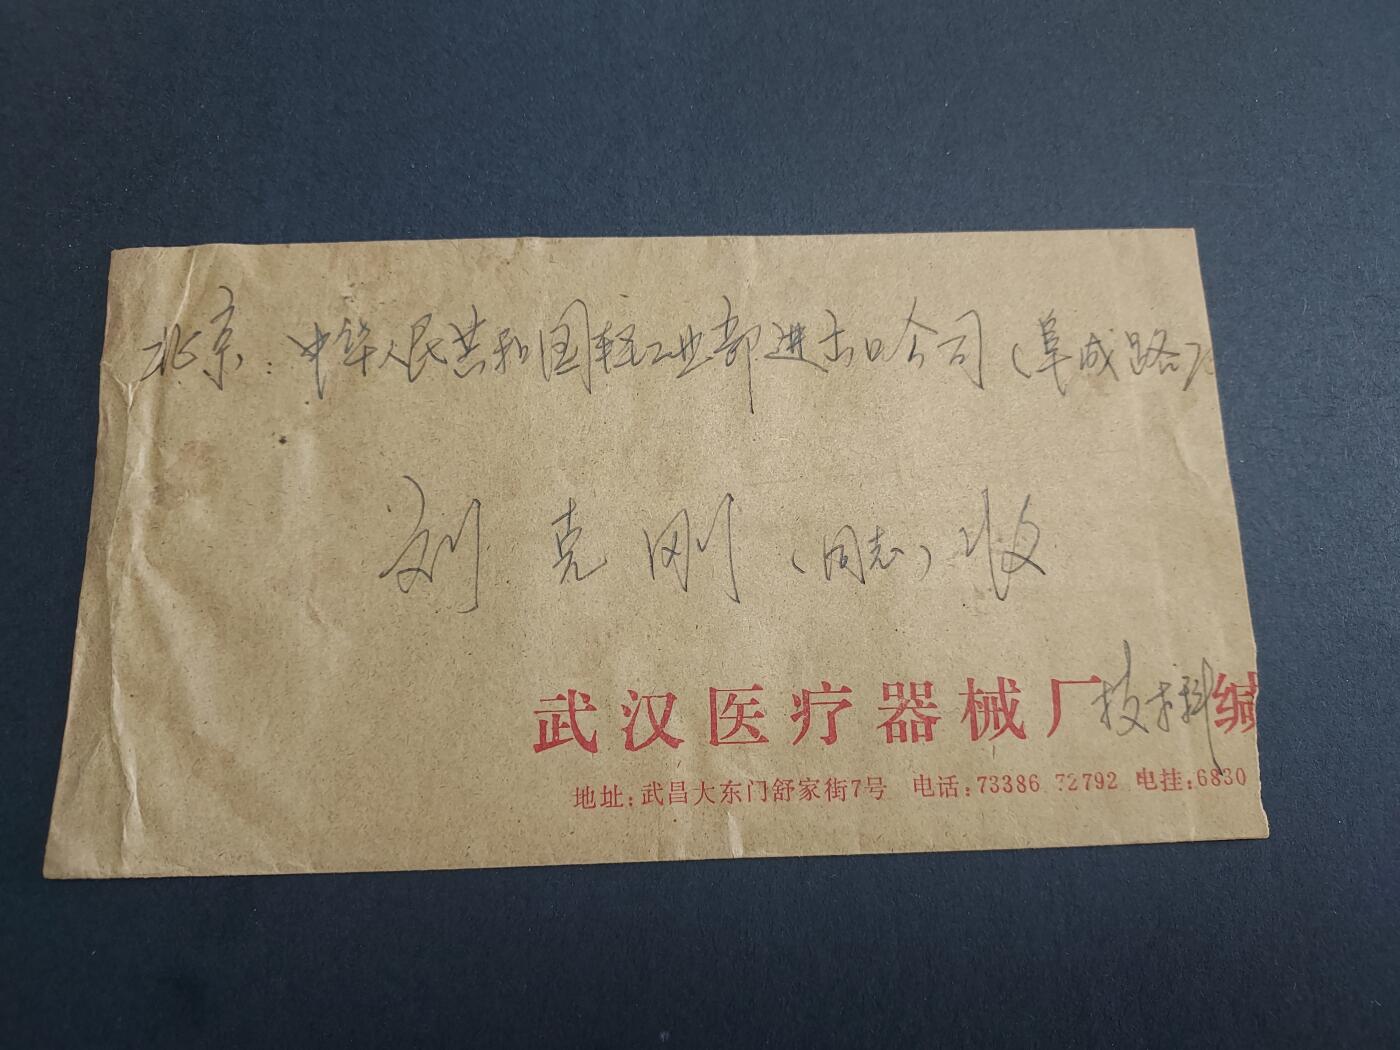 北京：中华人民共和国轻工业部进出口公司（阜成路
刘克刚（同志）收
武汉医疗器械厂技术科缄
地址：武昌大东门舒家街7号 电话：73386 72792 电挂：6830